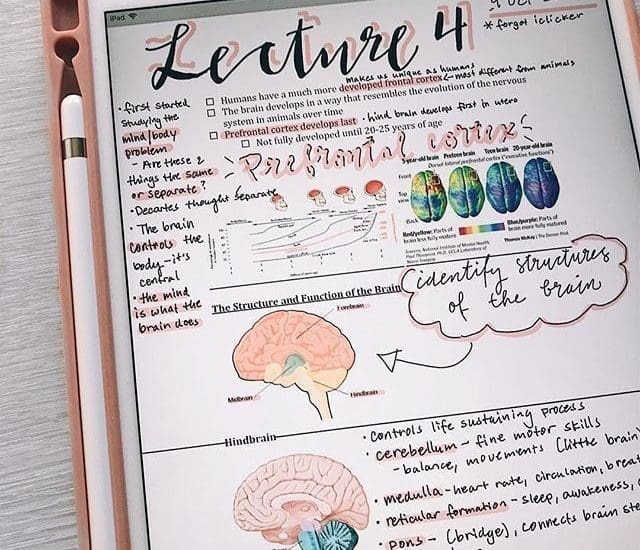 iPad
Lecture 4
* forgot iclicker
makes us unique as humans
Humans have a much more developed frontal cortex ← most different from animals
The brain develops in a way that resembles the evolution of the nervous
system in animals over time
Prefrontal cortex develops last - hind brain develops first in utero
Not fully developed until 20-25 years of age
• first started
studying the
mind/body
problem
- Are these 2
things the same
or separate?
• Decartes thought separate
• The brain
controls the
body - it's
central
• the mind
is what the
brain does
Prefrontal cortex
5-year-old brain Preteen brain Teen brain 20-year-old brain
Dorsal lateral prefrontal cortex ('executive functions')
Front
Top
view
Back
Red/yellow: Parts of
brain less fully mature
Blue/purple: Parts of
brain more fully matured
Sources: National Institute of Mental Health
Paul Thompson, Ph.D., UCLA Laboratory of
Neuro Imaging
Thomas McKay | The Denver Post
identify structures
of the brain
The Structure and Function of the Brain
Forebrain
Midbrain
Hindbrain
Hindbrain
• controls life sustaining process
• cerebellum - fine motor skills
- balance, movements (little brain)
• medulla - heart rate, circulation,
• reticular formation - sleep, awareness,
• pons - (bridge), connects brain